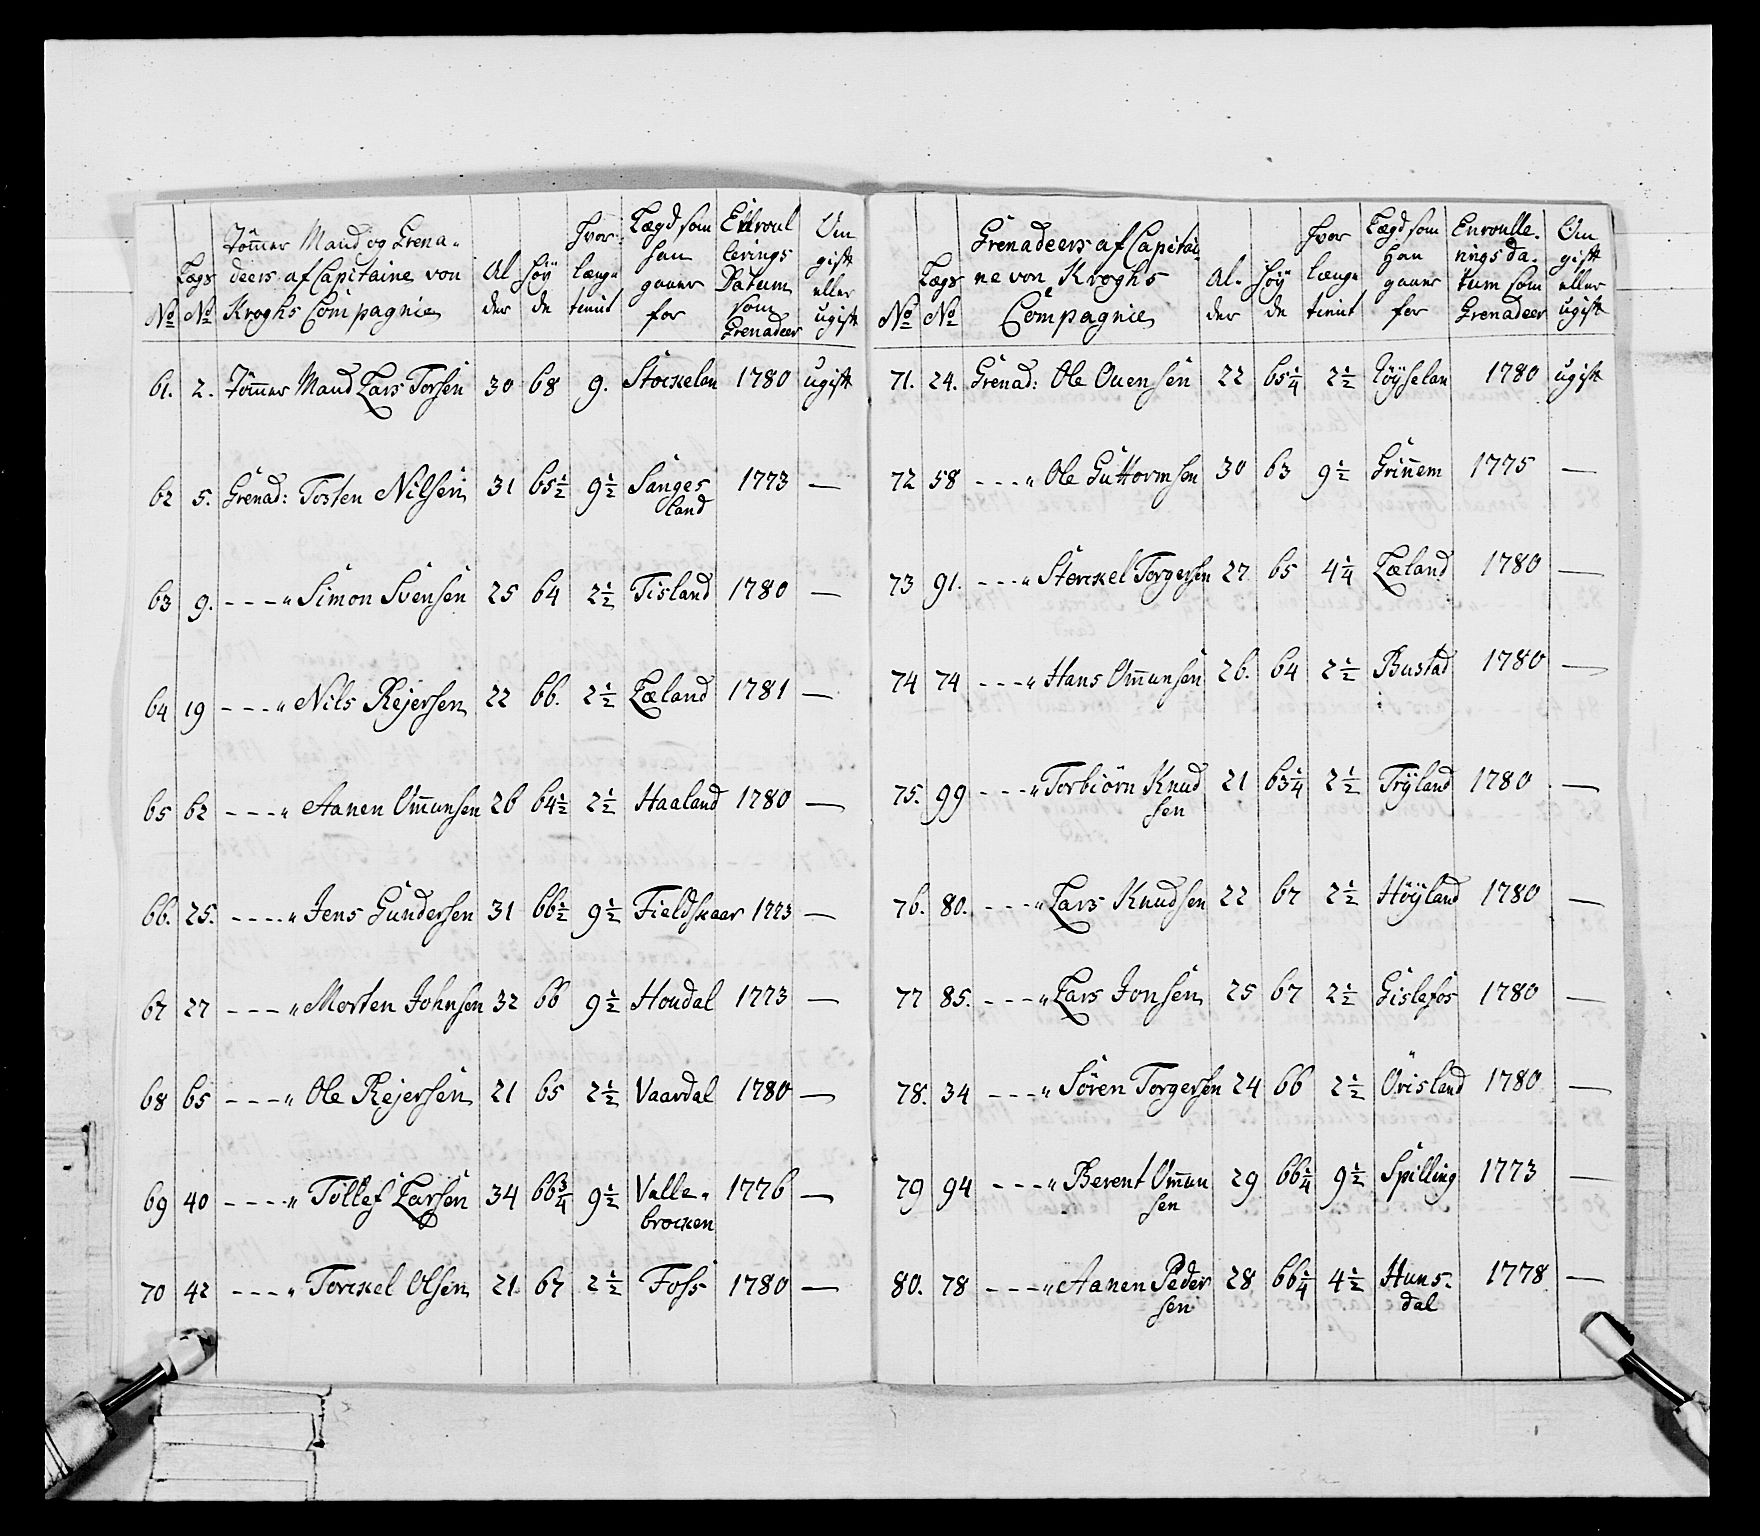 No
Lægs No
Tömer Mand og Grena-
deers af Capitaine von
Kroghs Compagnie
Al
der
Höy
de
Hvor
længe
tient
Lægd som
han
gaaer
for
Enroul
lerings
Datum
som
Grenadeer
Om
gift
eller
ugift
61. 2. Tömer Mand Lars Torsen 30 68 9. Stockeland 1780 ugift
62 5. Grenad: Tosten Nilsen 31 65½ 9½ Sanges 1773 —
land
63 9. - - - „ Simon Svensen 25 64 2½ Tisland 1780 —
64 19 - - - „ Nils Rejersen 22 66. 2½ Læland 1781 —
65 62 - - - „ Aanen Omunsen 26 64½ 2½ Haaland 1780 —
66. 25. - - - - „ Jens Gundersen 31 66½ 9½ Fieldskaar 1773 —
67 27 - - - „ Morten Johnsen 32 66 9½ Houdal 1773 —
68 65 - - - - „ Ole Rejersen 21 65 2½ Vaardal 1780 —
69 40 - - - - „ Tollef Larsen 34 66¾ 9½ Valle- 1776 —
brocken
70 42 - - - „ Torckel Olsen 21. 67 2½ Foss 1780 —
No
Lægs No
Grenadeers af Capitai-
ne von Kroghs
Compagnie
Al-
der
Höy
de
Hvor
længe
tient
Lægd som
Han
gaaer
for
Enroulle-
rings da-
tum som
Grenadeer
Om
gift
eller
ugift
71. 24. Grenad: Ole Ouensen 22 65¼ 2½ Höyseland 1780 ugift
72 58 - - - „ Ole Guttormsen 30 63 9½ Grinem 1775 —
73 91. - - - - „ Sterckel Torgersen 27 65 4¼ Læland 1780 —
74 74 - - - - „ Hans Omunsen 26. 64 2½ Bustad 1780 —
75. 99 - - - „ Torbiörn Knud 21 63¼ 2½ Tryland 1780 —
sen
76. 80. - - - - „ Lars Knudsen 22 67 2½ Höyland 1780 —
77 85. - - - - „ Lars Jonsen 25 67 2½ Gislefos 1780 —
78. 34 - - - „ Sören Torgersen 24 66 2½ Örisland 1780 —
79 94 - - - - „ Berent Omun 29 66¼ 9½ Spilling 1773 —
sen
80. 78 - - - - „ Aanen Peder 28 66¼ 4½ Huns- 1778 —
sen dal